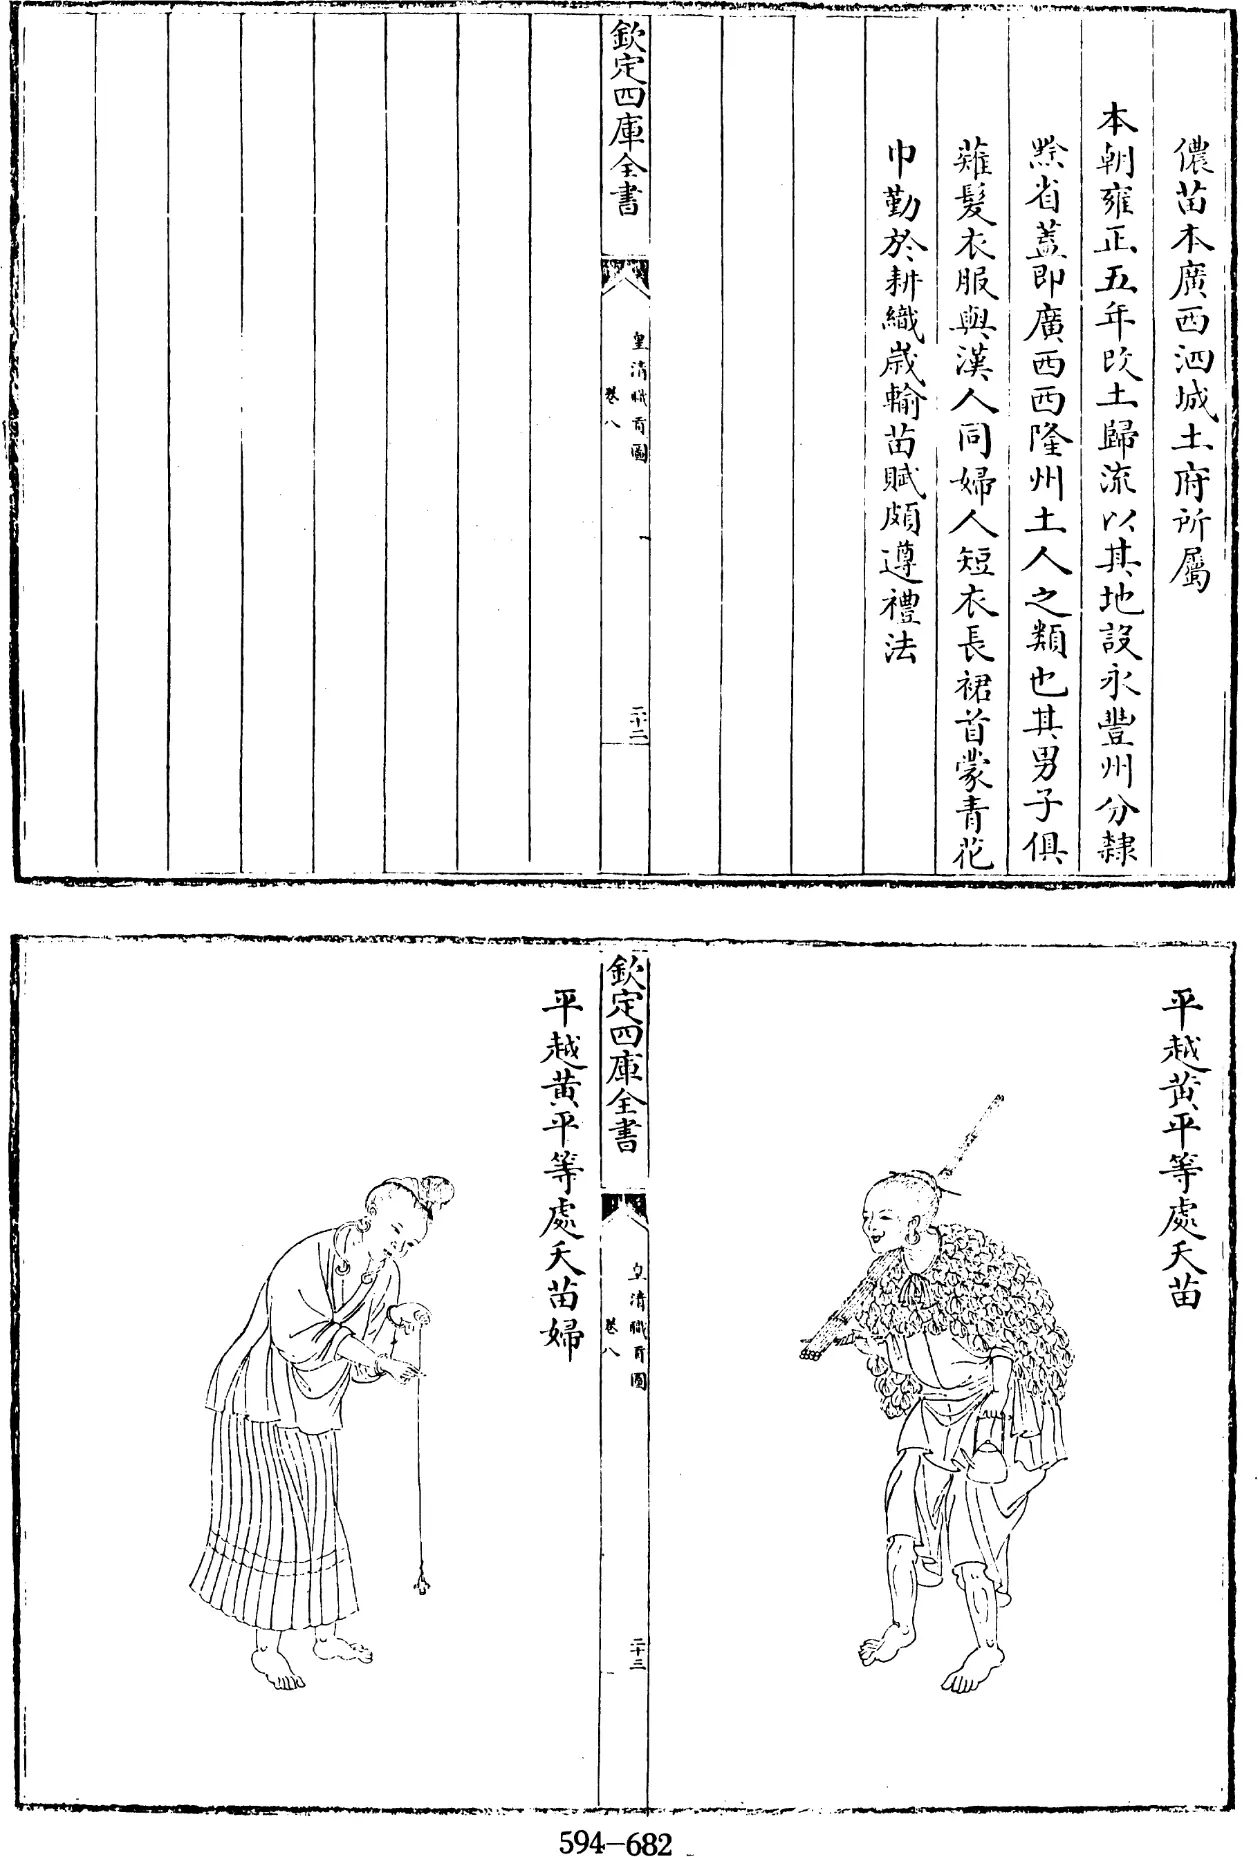 儂苗本廣西泗城土府所屬
本朝雍正五年改土歸流以其地設永豐州分隸
黔省蓋即廣西西隆州土人之類也其男子俱
薙髮衣服與漢人同婦人短衣長裙首蒙青花
巾勤於耕織歲輸苗賦頗遵禮法
欽定四庫全書
皇清職貢圖
卷八
二十二
平越黃平等處夭苗
欽定四庫全書
皇清職貢圖
卷八
二十三
平越黃平等處夭苗婦
594—682